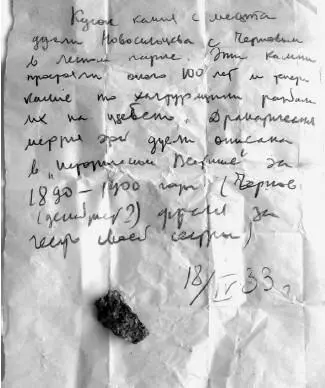 Кусок камня с места
дуели Новосильцева с Черновым
в лесном парке. Эти камни
простояли около 100 лет и теперь
какие то
их на известь. Драматическая
дуели описана
в „историческом Вестнике" за
1890–1900 годы (Чернов
(декабрист?) дрался за
честь своей сестры)
18/IV 33 г.